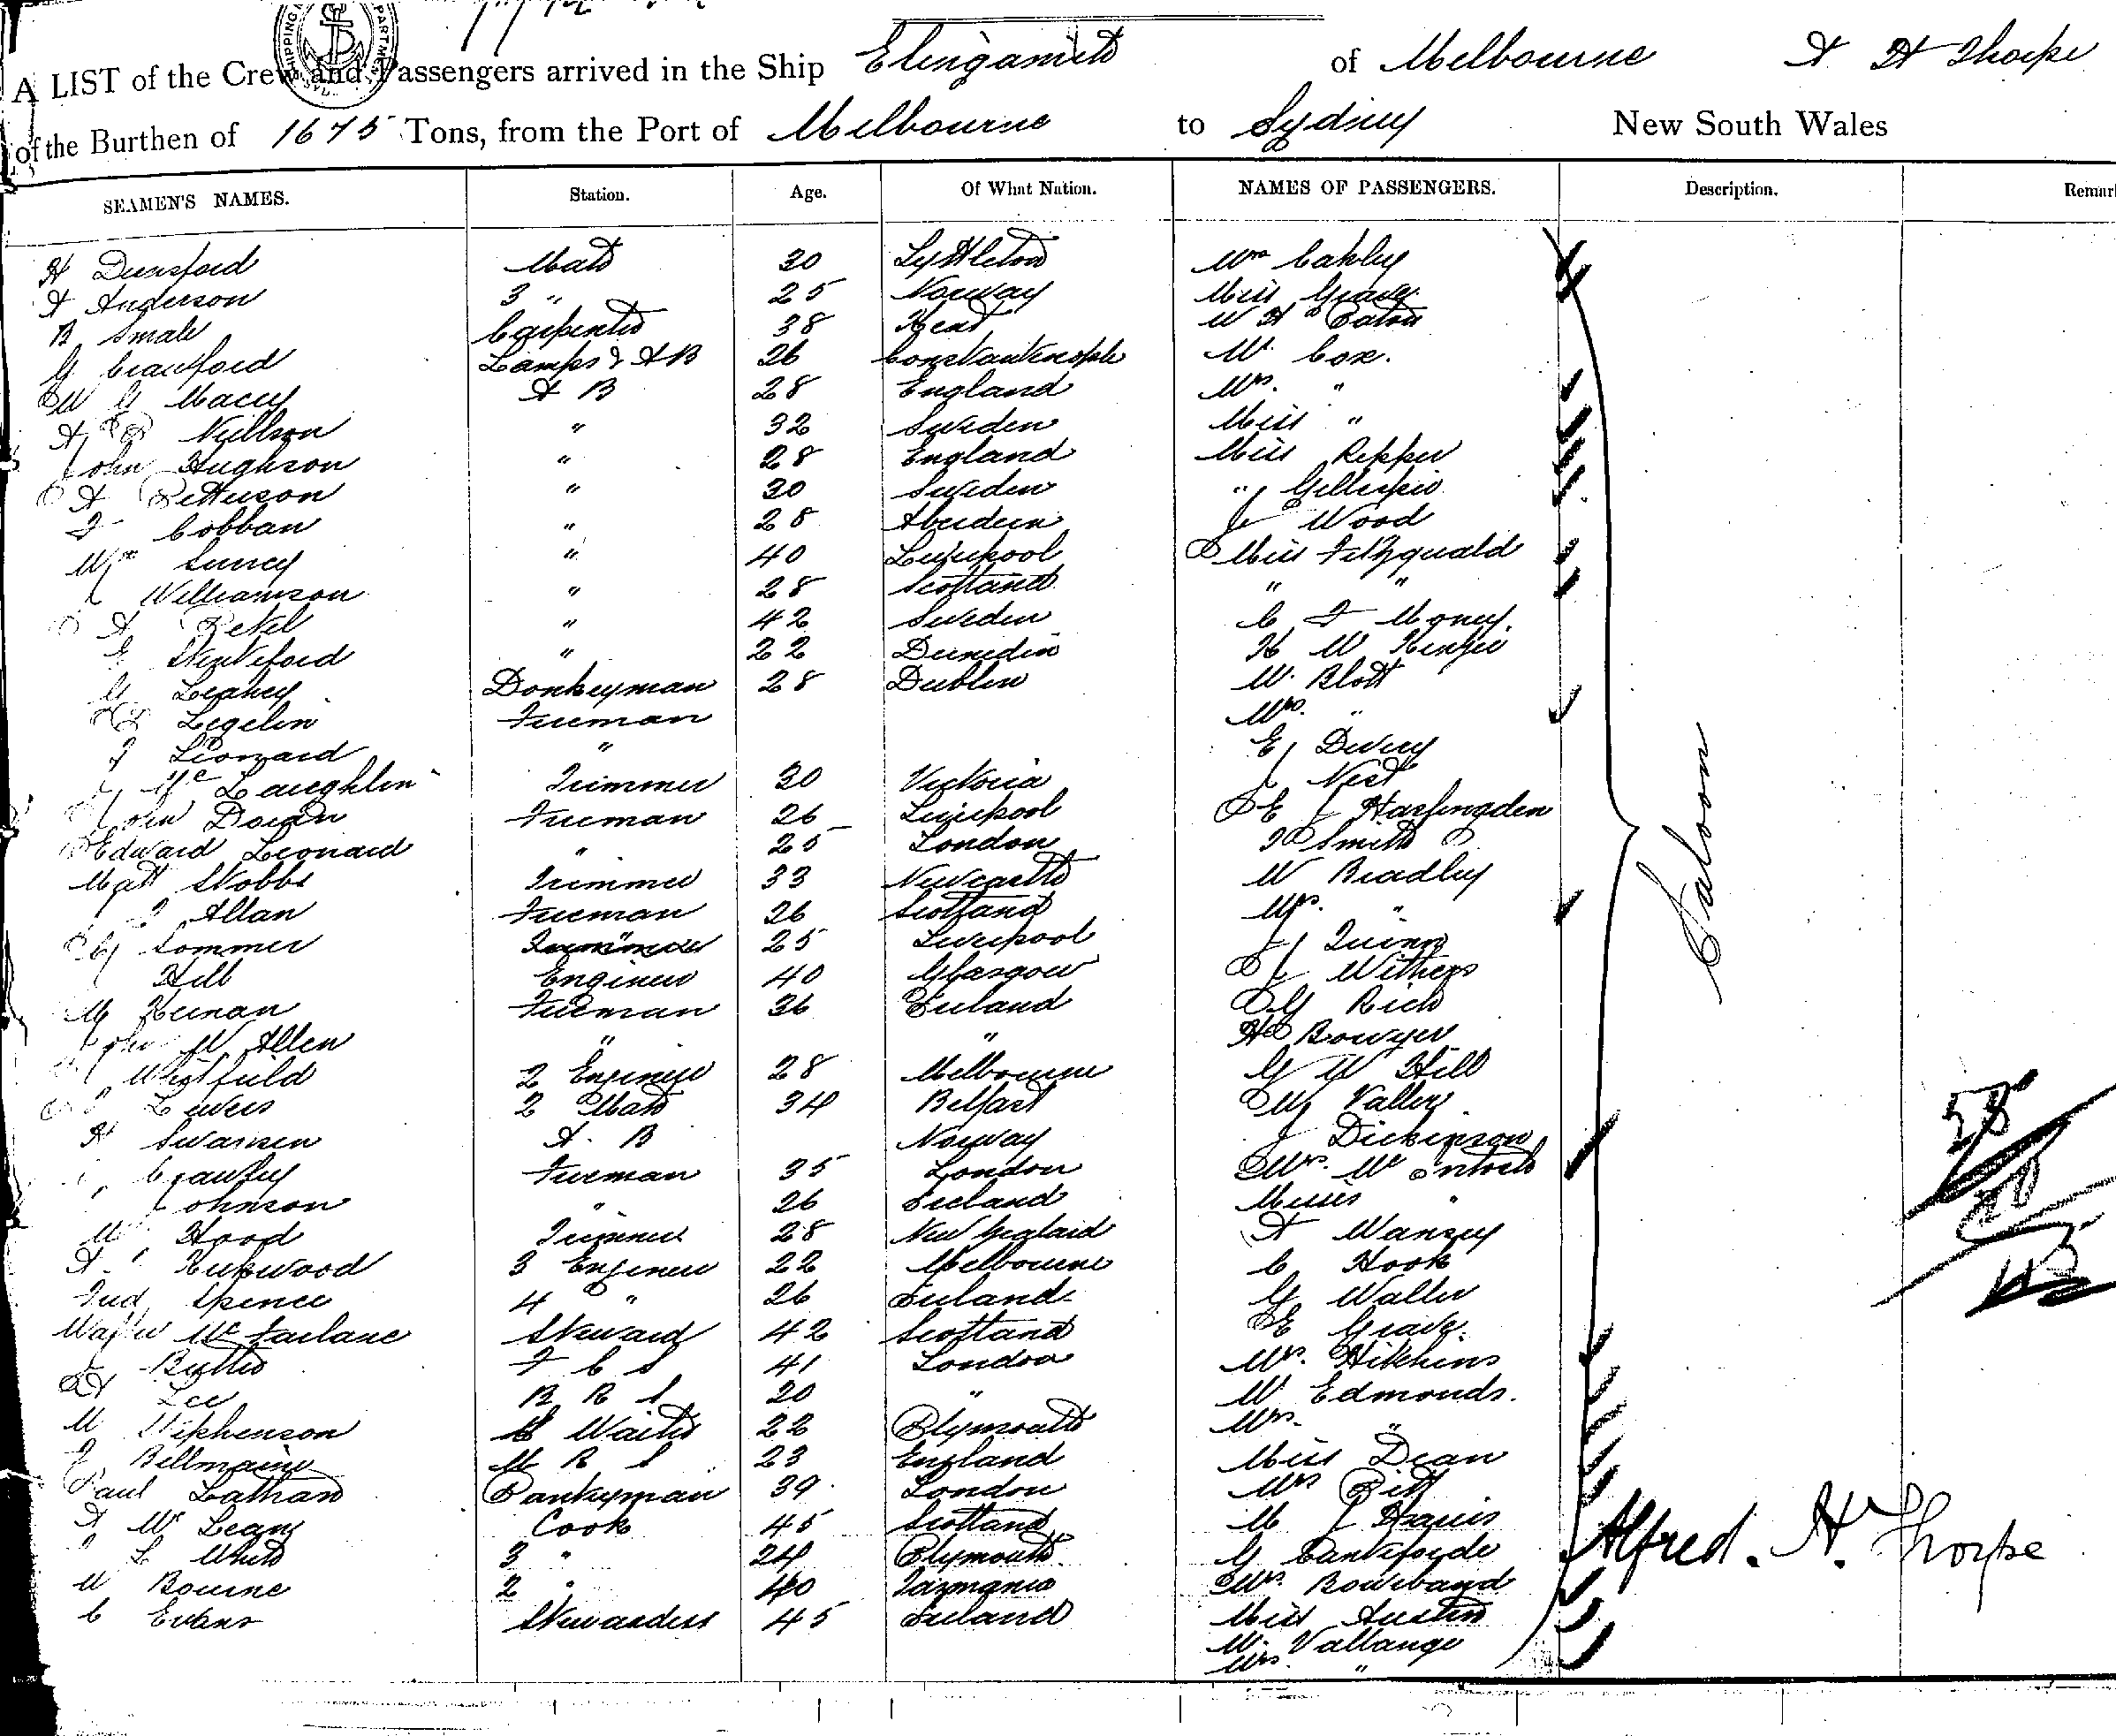 A LIST of the Crew and Passengers arrived in the Ship Elingamite of Melbourne A H Thorpe
of the Burthen of 1675 Tons, from the Port of Melbourne to Sydney New South Wales
SEAMEN'S NAMES. Station. Age. Of What Nation. NAMES OF PASSENGERS. Description. Remar
H Dunsford Mate 30 Lyttleton Mrs Oakley
A Anderson 3 " 25 Norway Miss Grave
B Smale Carpenter 38 Kent W H Eaton
G Craulford Lamps & AB 26 Constantinople W. Cox.
W G Macey A B 28 England Mrs. "
A Neilson " 32 Sweden Miss "
John Hughson " 28 England Miss Repper
A Petterson " 30 Sweden " Gillespie
F Cobban " 28 Aberdeen J Wood
Wm Surrey " 40 Liverpool Miss Fitzgerald
J Williamson " 28 Scotland " "
A Petel " 42 Sweden C F Money.
" 22 Dunedin H W Kenzie
Leahey Donkeyman 28 Dublin W. Blott
Legelin Fireman Mrs. "
J Leonard " E J Devery
J Mc Laughlin Trimmer 30 Victoria J West
John Doran Fireman 26 Liverpool E J Haslingden
Edward Leonard " 25 London Smith
Matt Stobbs Trimmer 33 Newcastle W Bradley
Allan Fireman 26 Scotland Mrs. "
Sommer Trimmer 25 Liverpool J Quinn
J Hill Engineer 40 Glasgow J Withers
M Keenan Fireman 36 Ireland G Rich
John W Allen " " H Bowyer
Whitfield 2 Engineer 28 Melbourne G W Hill
Lewers 2 Mate 34 Belfast Valler
H Swansen A. B Norway J Dickinson
Crawley Fireman 35 London Mrs. Mc Entosh
Johnson " 26 Ireland Misses "
W Hood Trimmer 28 New Zealand A Wansey
A. Kirkwood 3 Engineer 22 Melbourne C Hook
Fred Spence 4 " 26 Ireland G Waller
Walter Mc Farlane Steward 42 Scotland E Grave.
J Butler F C S 41 London Mrs. Hitchins
Lee B R S 20 " W Edmonds.
W Stephenson Waiter 22 Plymouth Mrs. "
Bellmaine M R S 23 England Miss Dean
Paul Latham Pantryman 39 London Mrs Pitt
A Mc Lean Cook 45 Scotland M J Harris
L White 3 " 24 Plymouth
W Bourne 2 " 40 Tasmania Mrs. Boweband
C Evans Stewardess 45 Ireland Miss Austin
W. Vallange
Mrs. "
Saloon
58
113
Alfred. H. Thorpe